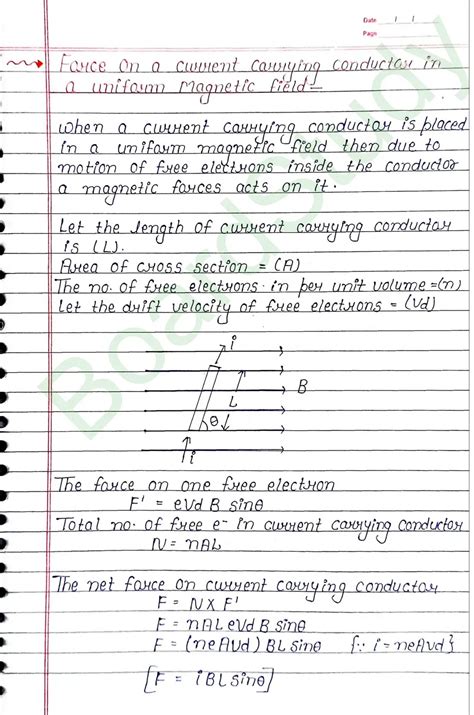 Date / /
Page
Force On a current carrying conductor in
a uniform Magnetic field—
When a current carrying conductor is placed
in a uniform magnetic field then due to
motion of free electrons inside the conductor
a magnetic forces acts on it.
Let the length of current carrying conductor
is (L).
Area of cross section = (A)
The no. of free electrons in per unit volume = (n)
Let the drift velocity of free electrons = (Vd)
i
B
L
θ
i
The force on one free electron
F' = eVd B sinθ
Total no. of free e⁻ in current carrying conductor
N = nAL
The net force on current carrying conductor
F = N X F'
F = nAL eVd B sinθ
F = (neAVd) BL sinθ {∵ i = neAVd}
[F = iBL sinθ]
BoardStudy